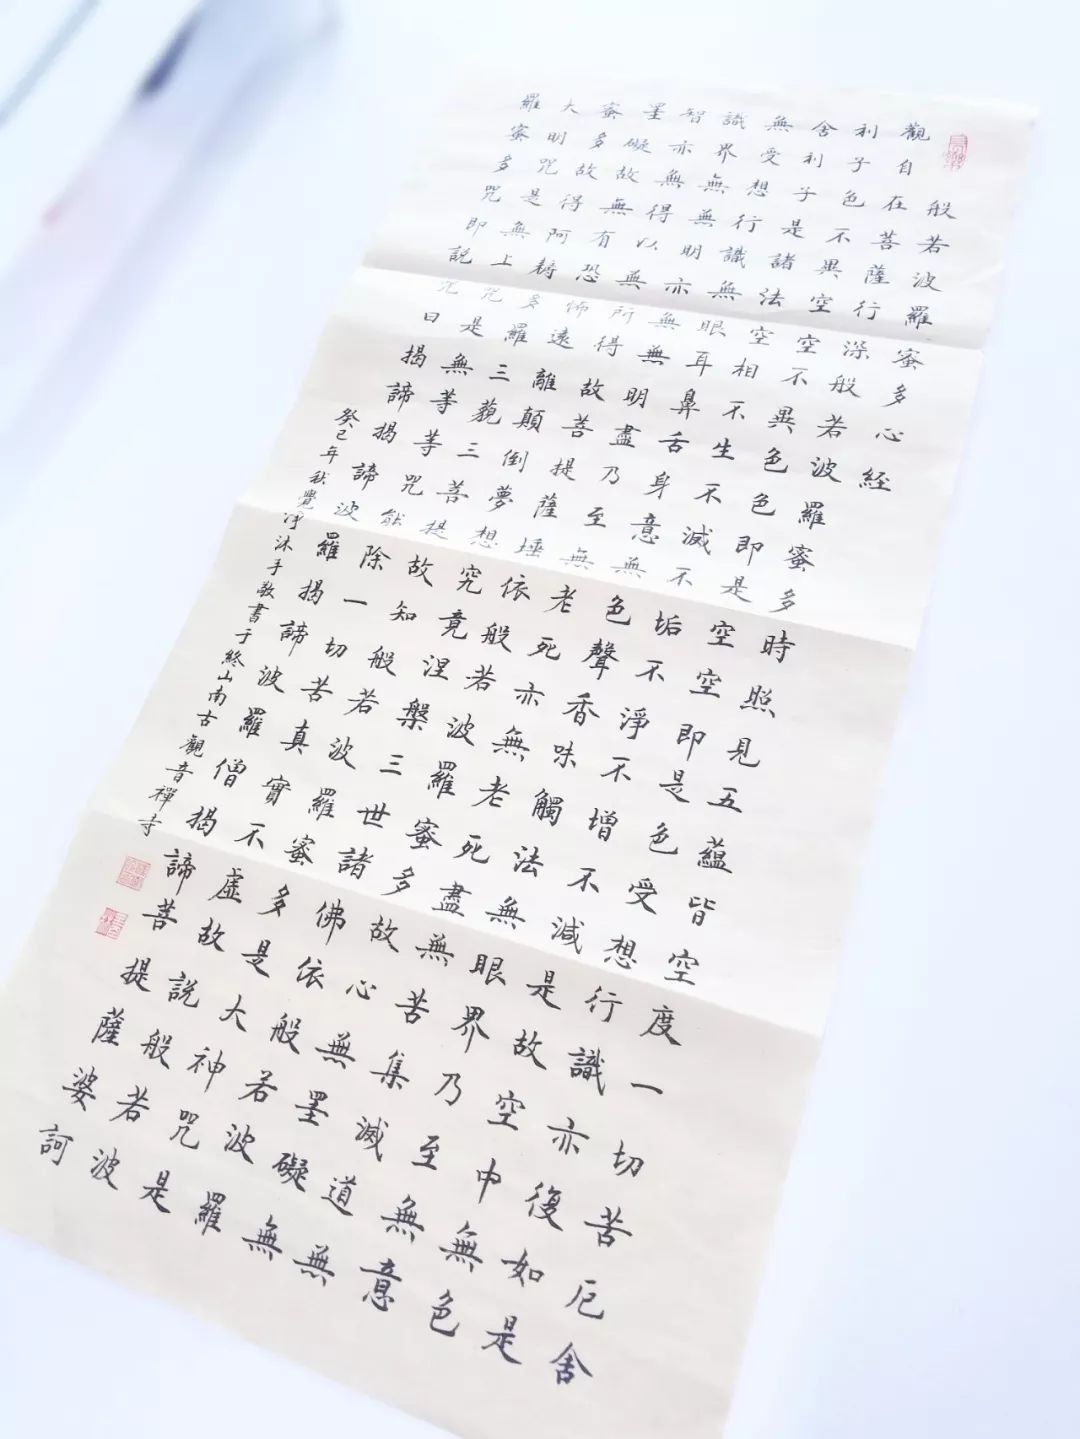 般若波羅蜜多心經
觀自在菩薩行深般若波羅蜜多時照見五蘊皆空度一切苦厄舍
利子色不異空空不異色色即是空空即是色受想行識亦復如是
舍利子是諸法空相不生不滅不垢不淨不增不減是故空中無色
無受想行識無眼耳鼻舌身意無色聲香味觸法無眼界乃至無意
識界無無明亦無無明盡乃至無老死亦無老死盡無苦集滅道無
智亦無得以無所得故菩提薩埵依般若波羅蜜多故心無罣礙無
罣礙故無有恐怖遠離顛倒夢想究竟涅槃三世諸佛依般若波羅
蜜多故得阿耨多羅三藐三菩提故知般若波羅蜜多是大神咒是
大明咒是無上咒是無等等咒能除一切苦真實不虛故說般若波
羅蜜多咒即說咒曰揭諦揭諦波羅揭諦波羅僧揭諦菩提薩婆訶
癸已年秋覺淨沐手敬書于終山南古觀音禪寺